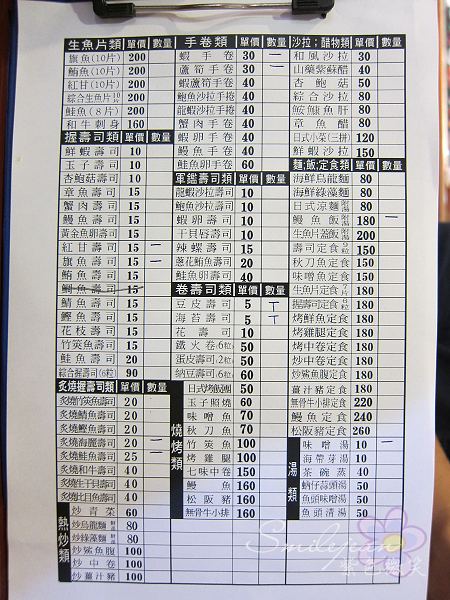 生魚片類 單價 數量
旗魚(10片) 200
鮪魚(10片) 200
紅甘(10片) 200
綜合生魚片 200
鮭魚(8片) 200
和牛刺身 160
握壽司類 單價 數量
鮮蝦壽司 10
玉子壽司 10
杏鮑菇壽司 10
章魚壽司 15
蟹肉壽司 15
鰻魚壽司 15
黃金魚卵壽司 15
紅甘壽司 15 一
旗魚壽司 15 一
鮪魚壽司 15
鯛魚壽司 15
鯖魚壽司 15
鰹魚壽司 15
花枝壽司 15
竹筴魚壽司 15
鮭魚壽司 20
綜合握壽司(6粒) 90
炙燒握壽司類 單價 數量
炙燒竹筴魚壽司 20
炙燒鯖魚壽司 20
炙燒鰹魚壽司 20
炙燒海鱺壽司 20 一
炙燒鮭魚壽司 25 一
炙燒和牛壽司 40
炙燒生干貝壽司 40
炙燒比目魚壽司 40
熱炒類
炒青菜 60
炒烏龍麵 80
炒綠藻麵 80
炒鯊魚腹 100
炒中卷 100
炒薑汁豬 100
手卷類 單價 數量
蝦手卷 30
蘆筍手卷 30 一
鮑魚沙拉手捲 40
龍蝦沙拉手捲 40
蟹肉手卷 40
蝦卵手卷 40
鰻魚手卷 40
鮭魚卵手卷 60
軍艦壽司類 單價 數量
龍蝦沙拉壽司 10
鮑魚沙拉壽司 10
蝦卵壽司 10
干貝唇壽司 10
辣螺壽司 15
蔥花鮪魚壽司 20
鮭魚卵壽司 40
卷壽司類 單價 數量
豆皮壽司 5 丅
海苔壽司 5 丅
花壽司 10
鐵火卷.6粒 50
蛋皮壽司.2粒 50
納豆壽司.6粒 60
燒烤類
日式烤飯糰 50
玉子照燒 60
味噌魚 70
秋刀魚 70
竹筴魚 100
烤雞腿 100
七味中卷 150
鰻魚 160
松阪豬 160
無骨牛小排 160
沙拉;醋物類 單價 數量
和風沙拉 30
山藥紫蘇醋 40
杏鮑菇 50
綜合沙拉 80
鮟鱇魚肝 80
章魚醋 80
日式小菜(三拼) 120
鮮蝦沙拉 150
麵;飯;定食類 單價 數量
海鮮烏龍麵 80
海鮮綠藻麵 80
日式涼麵 80
鰻魚飯 180 一
生魚片蓋飯 200
壽司定食 150
秋刀魚定食 150
味噌魚定食 150
生魚片定食 180
握壽司定食 180
烤鮮魚定食 180
烤雞腿定食 180
烤中卷定食 180
炒中卷定食 180
炒鯊魚腹定食 180
薑汁豬定食 180
無骨牛小排定食 220
鰻魚定食 240
松阪豬定食 260
湯類
味噌湯 10 一
海帶芽湯 10
茶碗蒸 40
蛤仔蒜頭湯 50
魚頭味噌湯 50
魚頭清湯 50
Smilejean